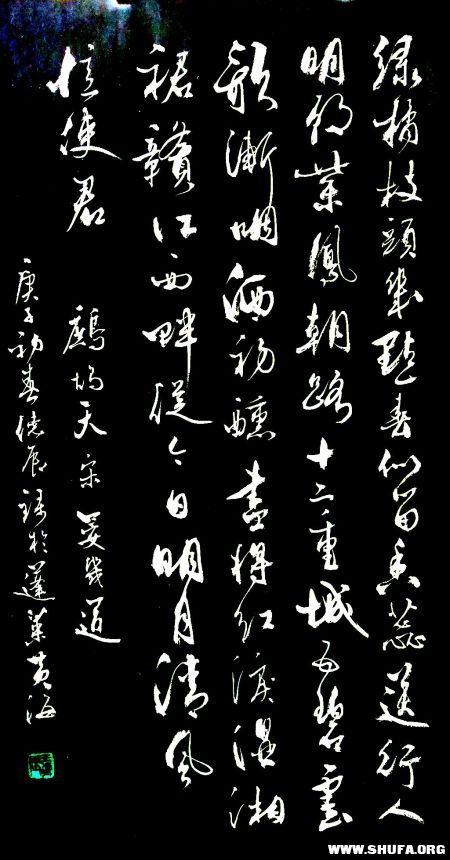 緑橘枝頭幾點春似留香蕊送行人
明朝紫鳳朝路十二重城五碧雲
歌漸咽酒初醺盡將紅淚濕湘
裙贛江西畔從今日明月清風
憶使君
鷓鴣天 宋晏幾道
庚子初春德於蓬萊黄海
WWW.SHUFA.ORG